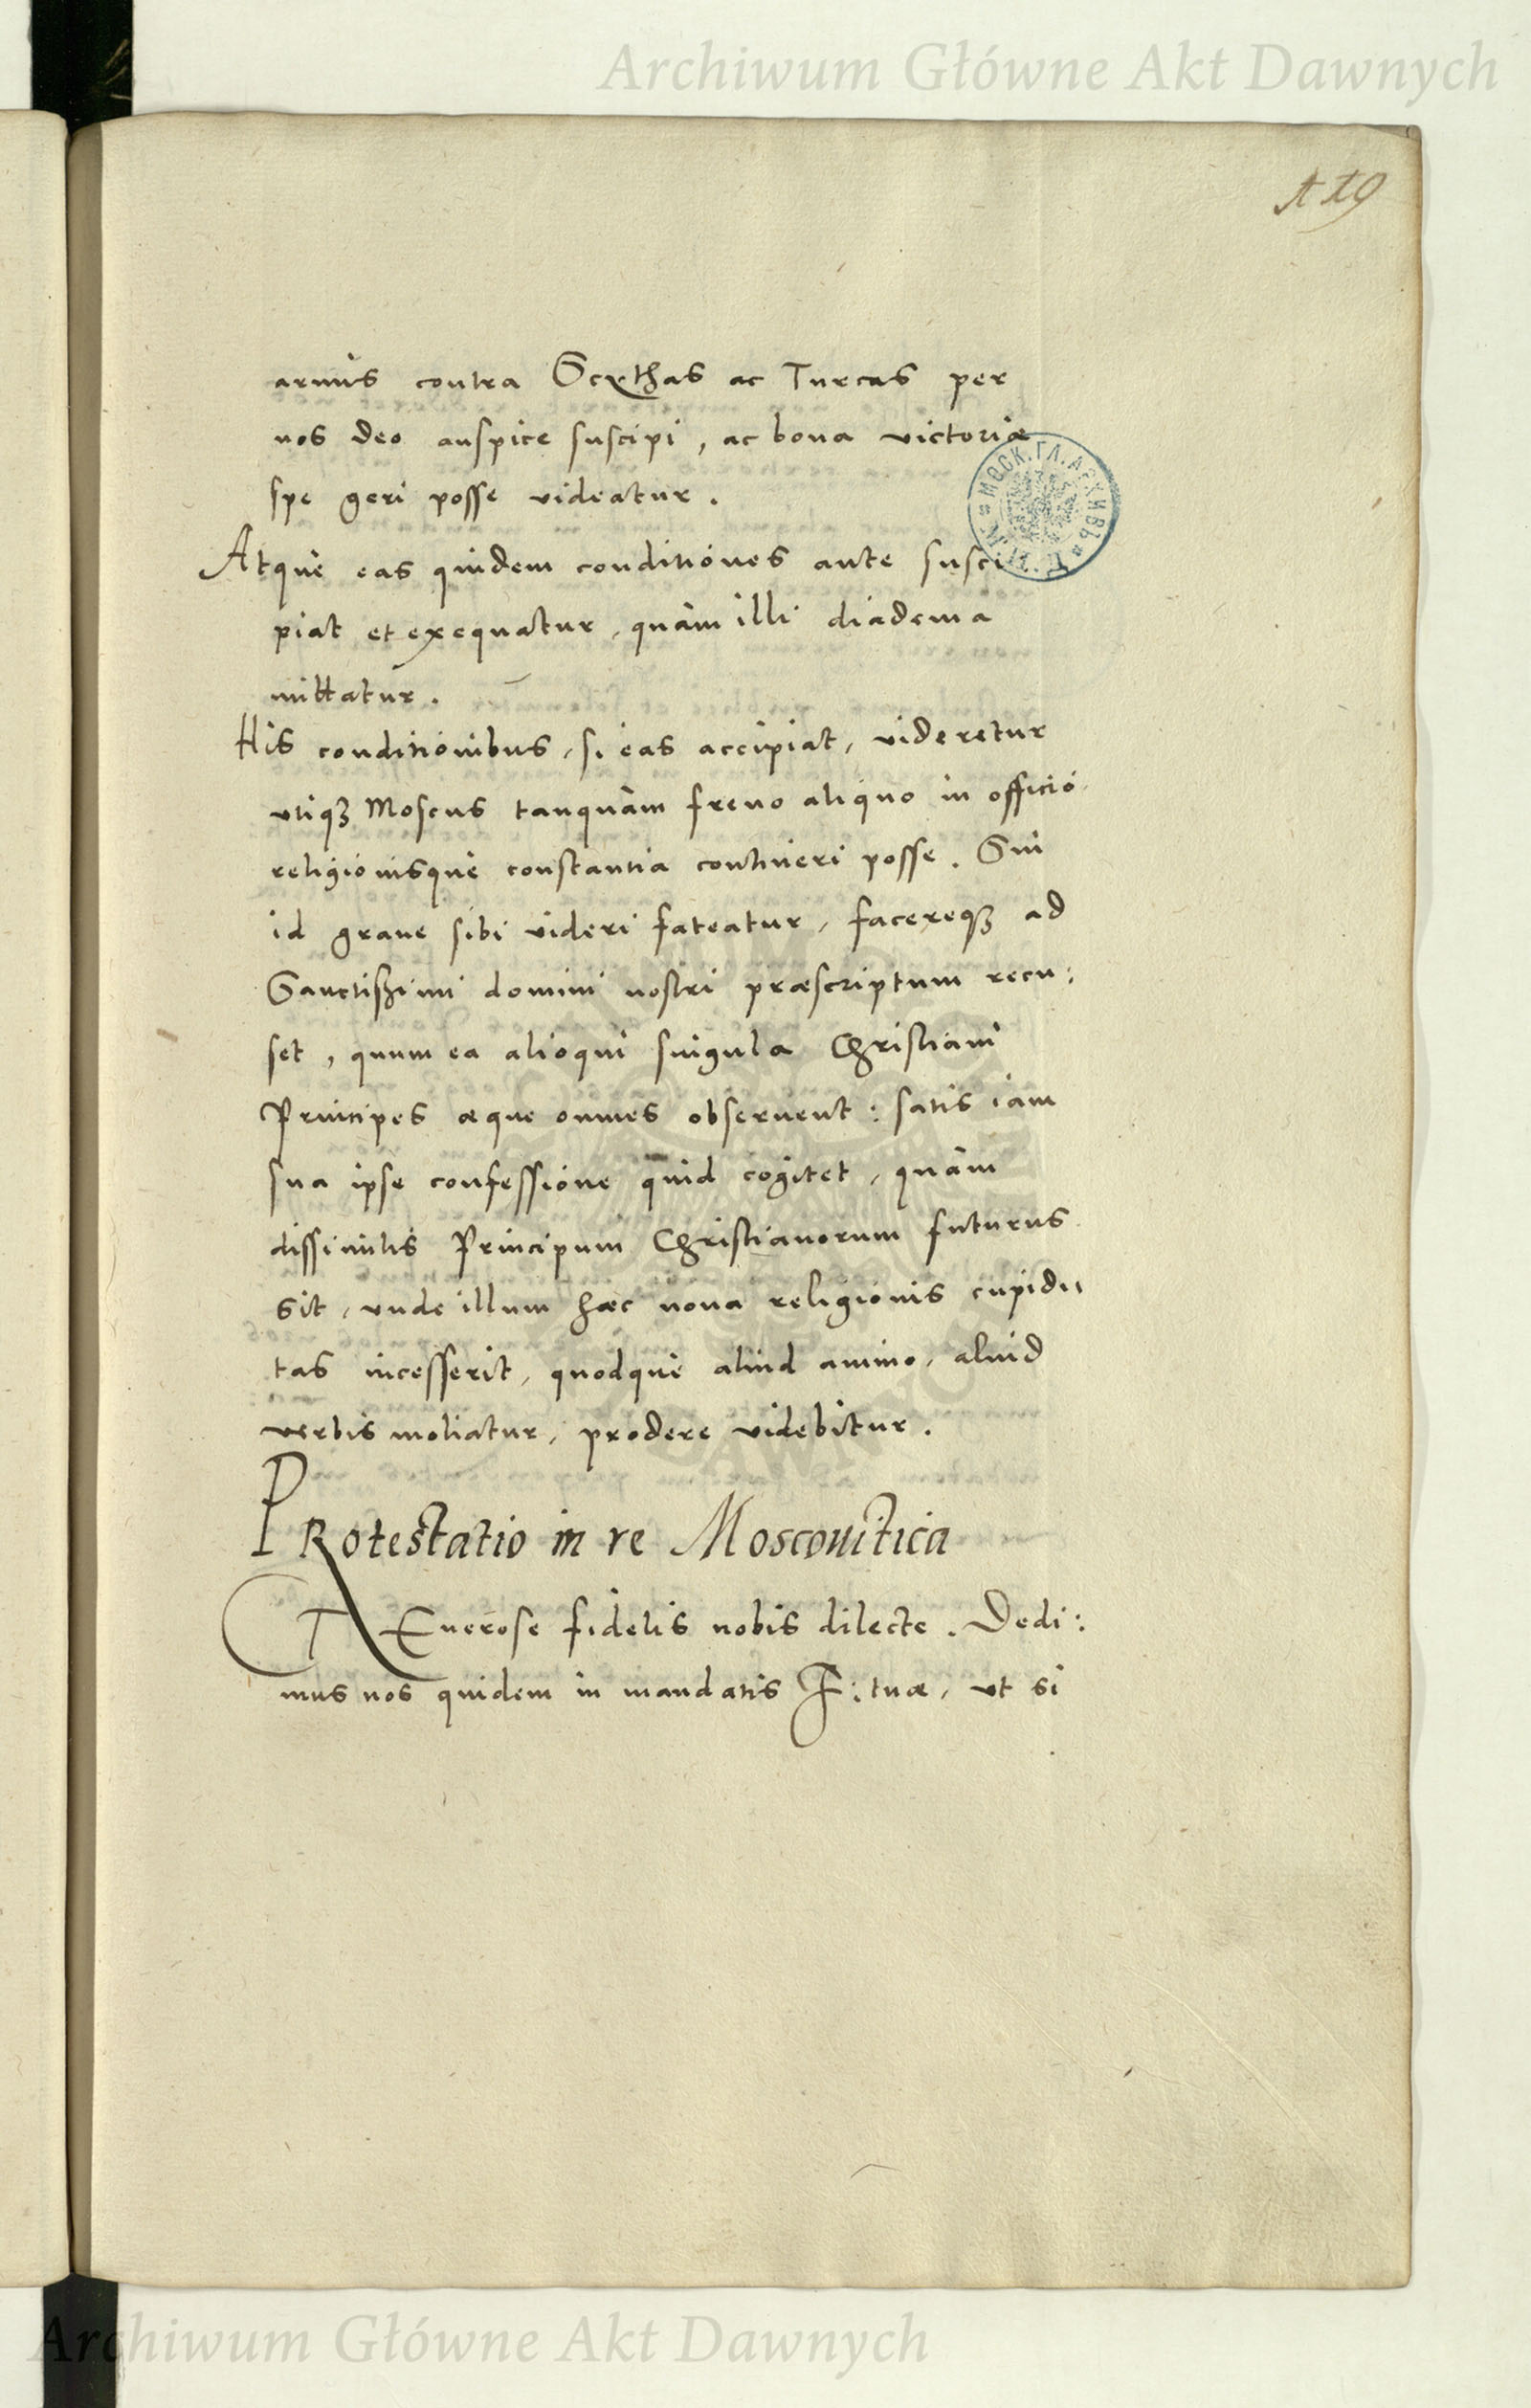 Archiwum Główne Akt Dawnych
119
armis contra Scythas ac Turcas per
nos deo auspice suscipi, ac bona victoriæ
spe geri posse videatur.
МОСК. ГЛ. АРХИВЪ
Atque eas quidem conditiones ante susci
piat et exequatur, quàm illi diadema
mittatur.
His conditionibus, si eas accipiat, videretur
utiqȝ Moscus tanquàm freno aliquo in officio
religionisque constantia contineri posse. Sin
id graue sibi videri fateatur, facereqȝ ad
Sanctißimi domini nostri præscriptum recu:
set, quum ea alioqui singula Christiani
Principes æque omnes obseruent: satis iam
sua ipse confessione quid cogitet, quàm
dissimilis Principum Christianorum futurus
sit, unde illum hæc noua religionis cupidi
tas incesserit, quodque aliud animo, aliud
verbis moliatur, prodere videbitur.
PRotestatio in re Moscouitica
GEnerose fidelis nobis dilecte. Dedi:
mus nos quidem in mandatis F: tuæ, ut si
Archiwum Główne Akt Dawnych